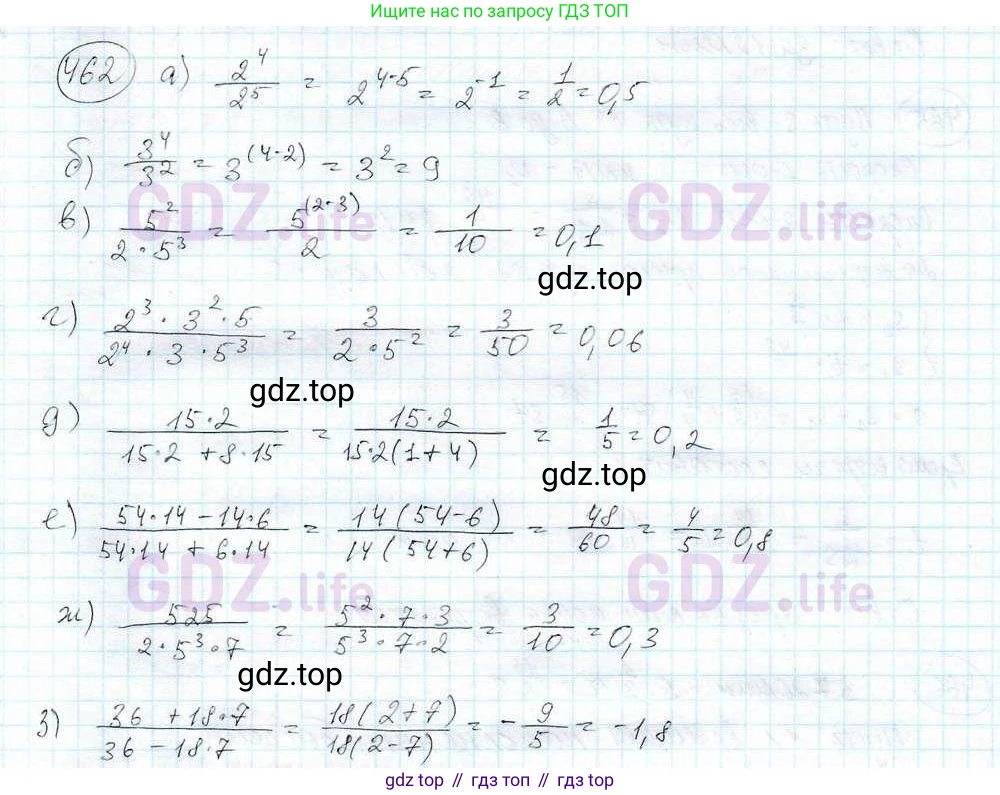 Ищите нас по запросу ГДЗ ТОП
462 а) 2^4/2^5 = 2^(4-5) = 2^-1 = 1/2 = 0,5
б) 3^4/3^2 = 3^(4-2) = 3^2 = 9
в) 5^2/(2·5^3) = 5^(2-3)/2 = 1/10 = 0,1
GDZ.life GDZ.life
gdz.top
г) (2^3·3^2·5)/(2^4·3·5^3) = 3/(2·5^2) = 3/50 = 0,06
gdz.top
д) (15·2)/(15·2+8·15) = (15·2)/(15·2(1+4)) = 1/5 = 0,2
gdz.top
е) (54·14-14·6)/(54·14+6·14) = 14(54-6)/14(54+6) = 48/60 = 4/5 = 0,8
GDZ.life GDZ.life
ж) 525/(2·5^3·7) = (5^2·7·3)/(5^3·7·2) = 3/10 = 0,3
gdz.top gdz.top
з) (36+18·7)/(36-18·7) = 18(2+7)/18(2-7) = -9/5 = -1,8
gdz top // гдз топ // gdz.top